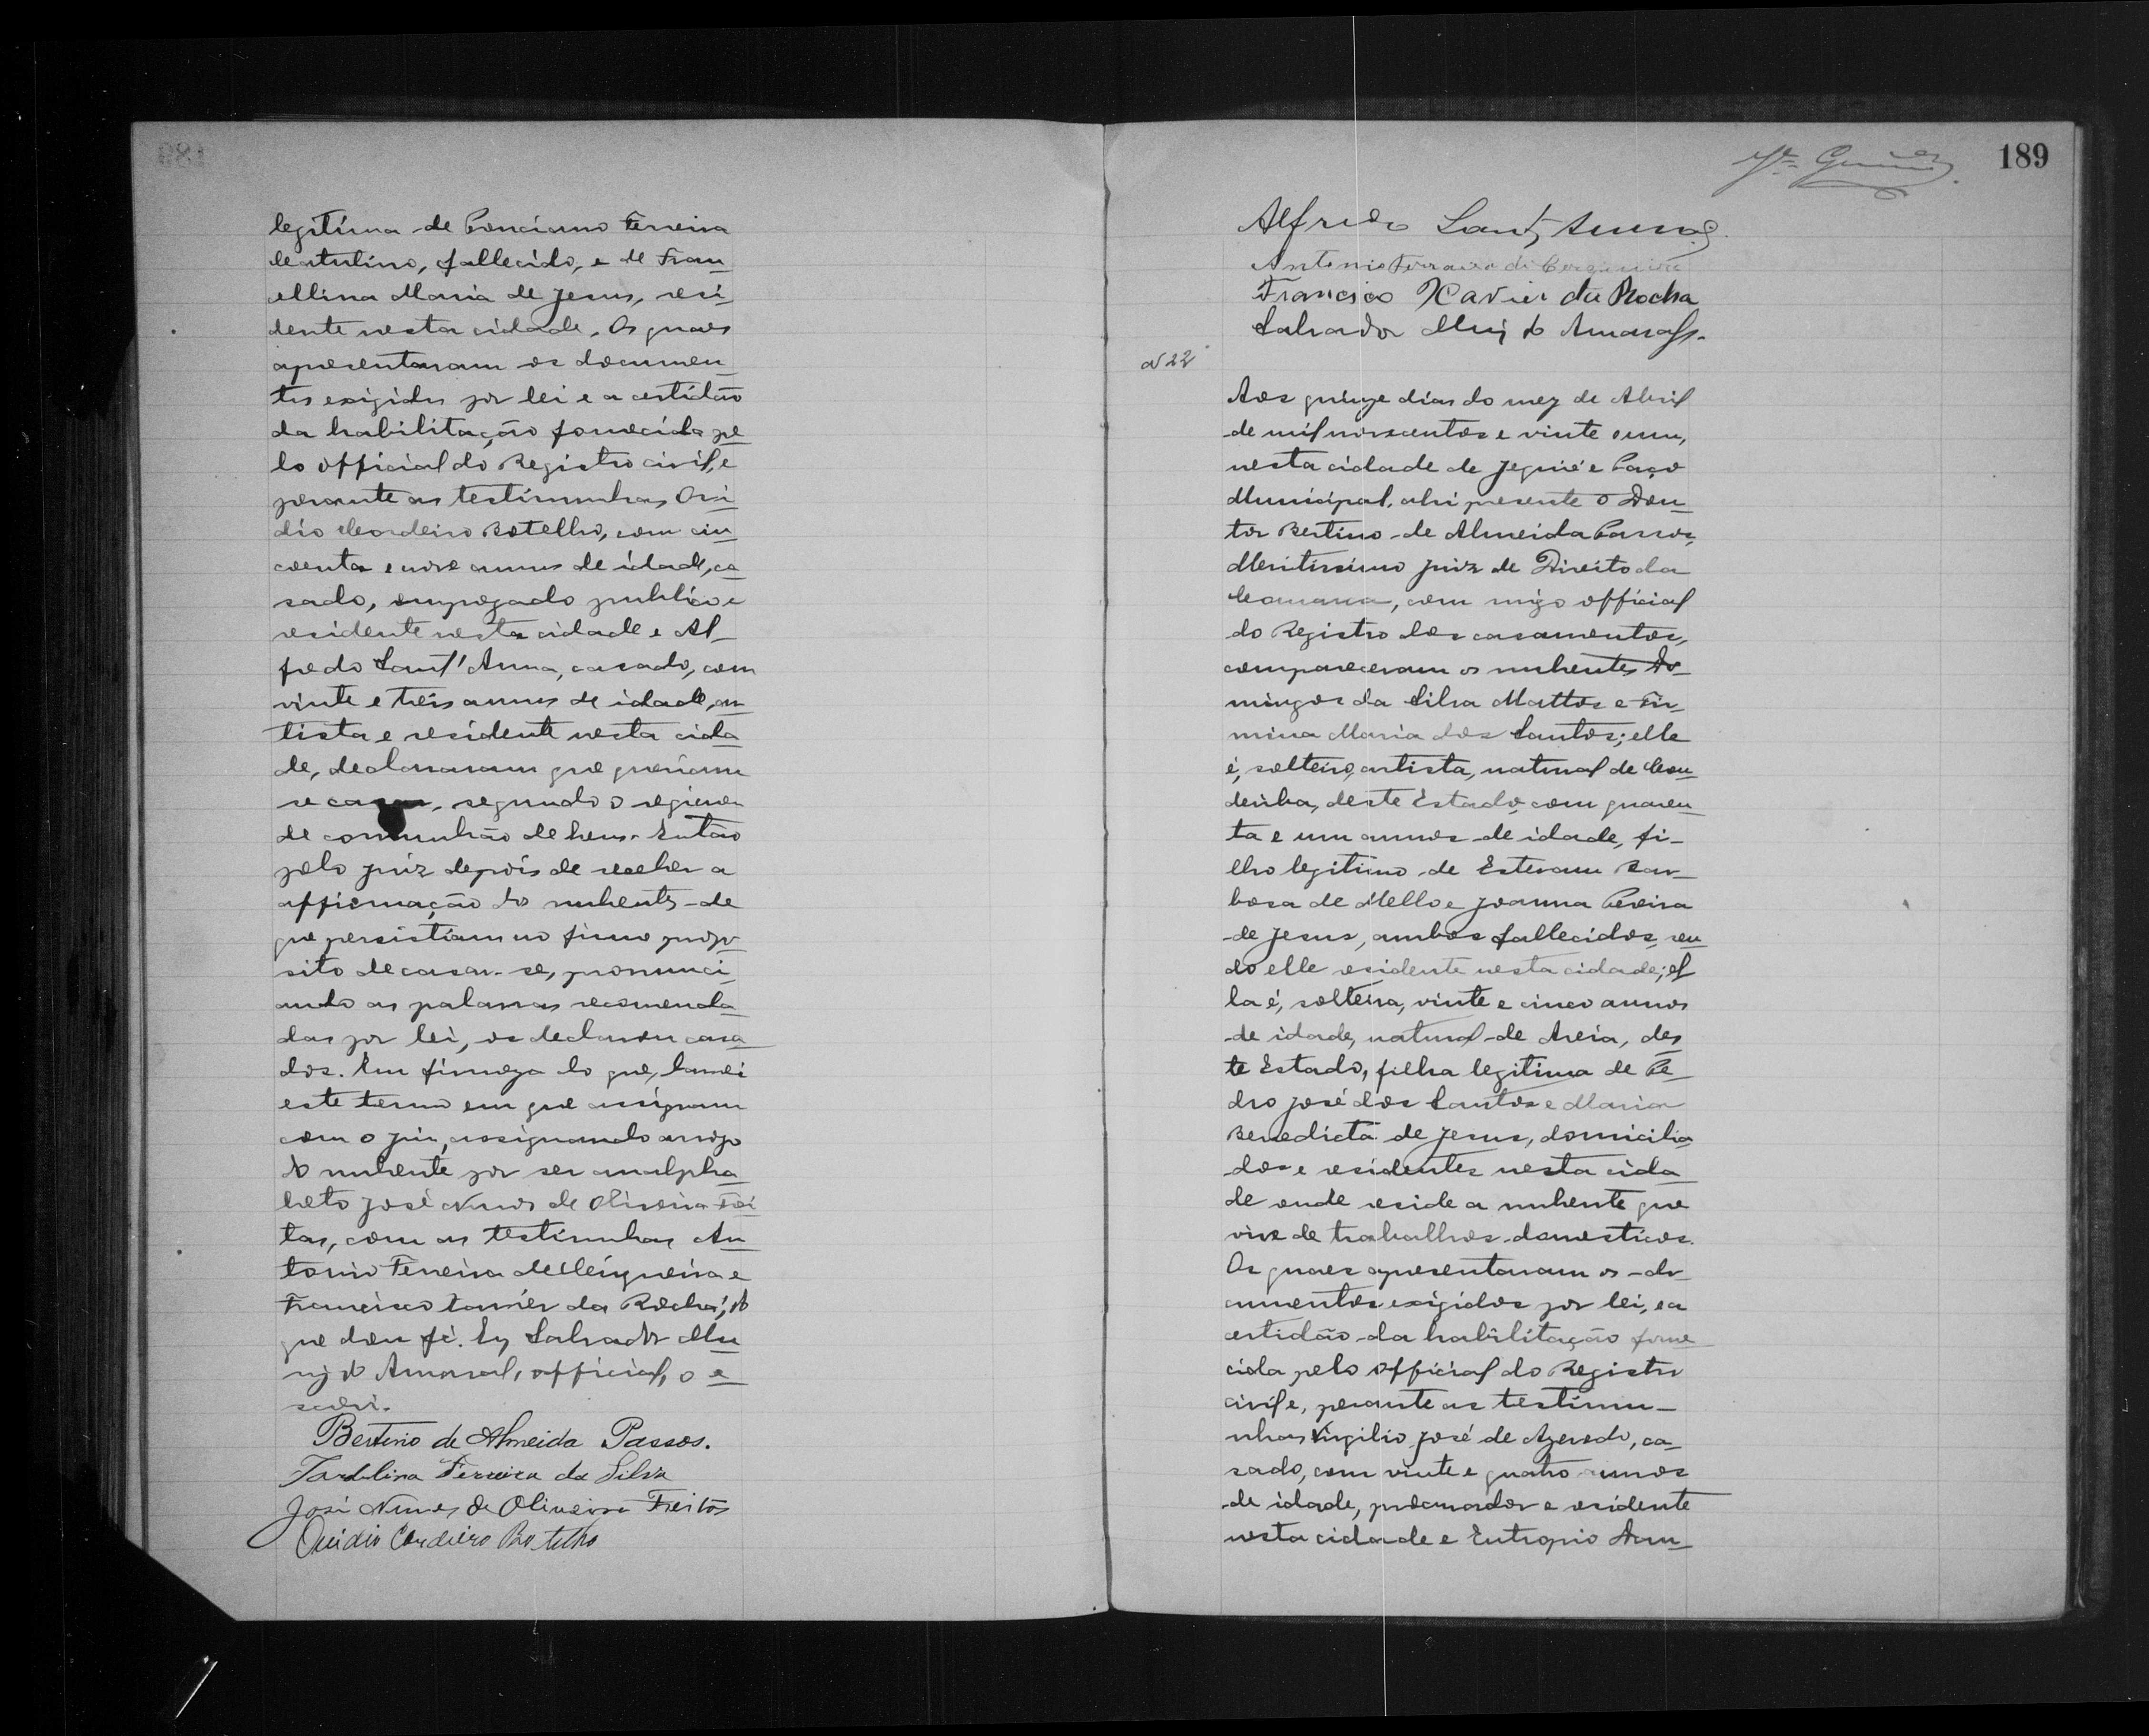 legitima de Ponciano Ferreira
Catulino, fallecido, e de Fran
cellina Maria de Jesus, resi
dente nesta cidade. Os quaes
apresentaram os documen
tos exigidos por lei e a certidão
da habilitação fornecida pe
lo official do Registro civil, e
perante as testimunhas Ovi
dio Cordeiro Botelho, com cin
coenta e nove annos de idade, ca
sado, empregado publico e
residente nesta cidade e Al-
fredo Sant'Anna, casado, com
vinte e treis annos de idade, ar
tista e residente nesta cida
de, declararam que queriam
se casar, segundo o regimen
de communhão de bens. Então
pelo juiz depois de receber a
affirmação dos nubentes de
que persistiam no firme propo
sito de casar-se, pronunci
ando as palavras recomenda
das por lei, os declarou casa
dos. Em firmeza do que, lavrei
este termo em que assignam
com o juiz, assignando a rogo
do nubente por ser analpha
beto José Nunes de Oliveira Frei
tas, com as testimunhas An
tonio Ferreira de Cerqueira e
Francisco Xavier da Rocha; do
que dou fé. Eu Salvador Mu
niz do Amaral, official, o es
crevi.
Bertino de Almeida Passos.
Ferreira da Silva
José Nunes de Oliveira Freitas
Ovidio Cordeiro Botelho
189
Alfredo Sant Anna
Antonio Ferreira de Cerqueira
Francisco Xavier da Rocha
Salvador Muniz do Amaral
N 22
Aos quinze dias do mez de Abril
de mil novecentos e vinte e um,
nesta cidade de Jequié e Paço
Municipal, ahi presente o Dou
tor Bertino de Almeida Passos,
Meritissimo juiz de Direito da
Comarca, com migo official
do Registro dos casamentos,
compareceram os nubentes Do-
mingos da Silva Mattos e Fir-
mina Maria dos Santos; elle
é, solteiro, artista, natural de Con
deúba, deste Estado, com quaren
ta e um annos de idade, fi-
lho legitimo de Estevam Bar-
bosa de Mello e Joanna Pereira
de Jesus, ambos fallecidos, sen
do elle residente nesta cidade; el
la é, solteira, vinte e cinco annos
de idade, natural de Areia, des
te Estado, filha legitima de Pe
dro José dos Santos e Maria
Benedicta de Jesus, domicilia
dos e residentes nesta cida
de onde reside a nubente que
vive de trabalhos domesticos.
Os quaes apresentaram os do
cumentos exigidos por lei, e a
certidão da habilitação forne
cida pelo official do Registro
civil e, perante as testimu-
nhas Virgilio José de Azevedo, ca-
sado, com vinte e quatro annos
de idade, procurador e residente
nesta cidade e Eutropio